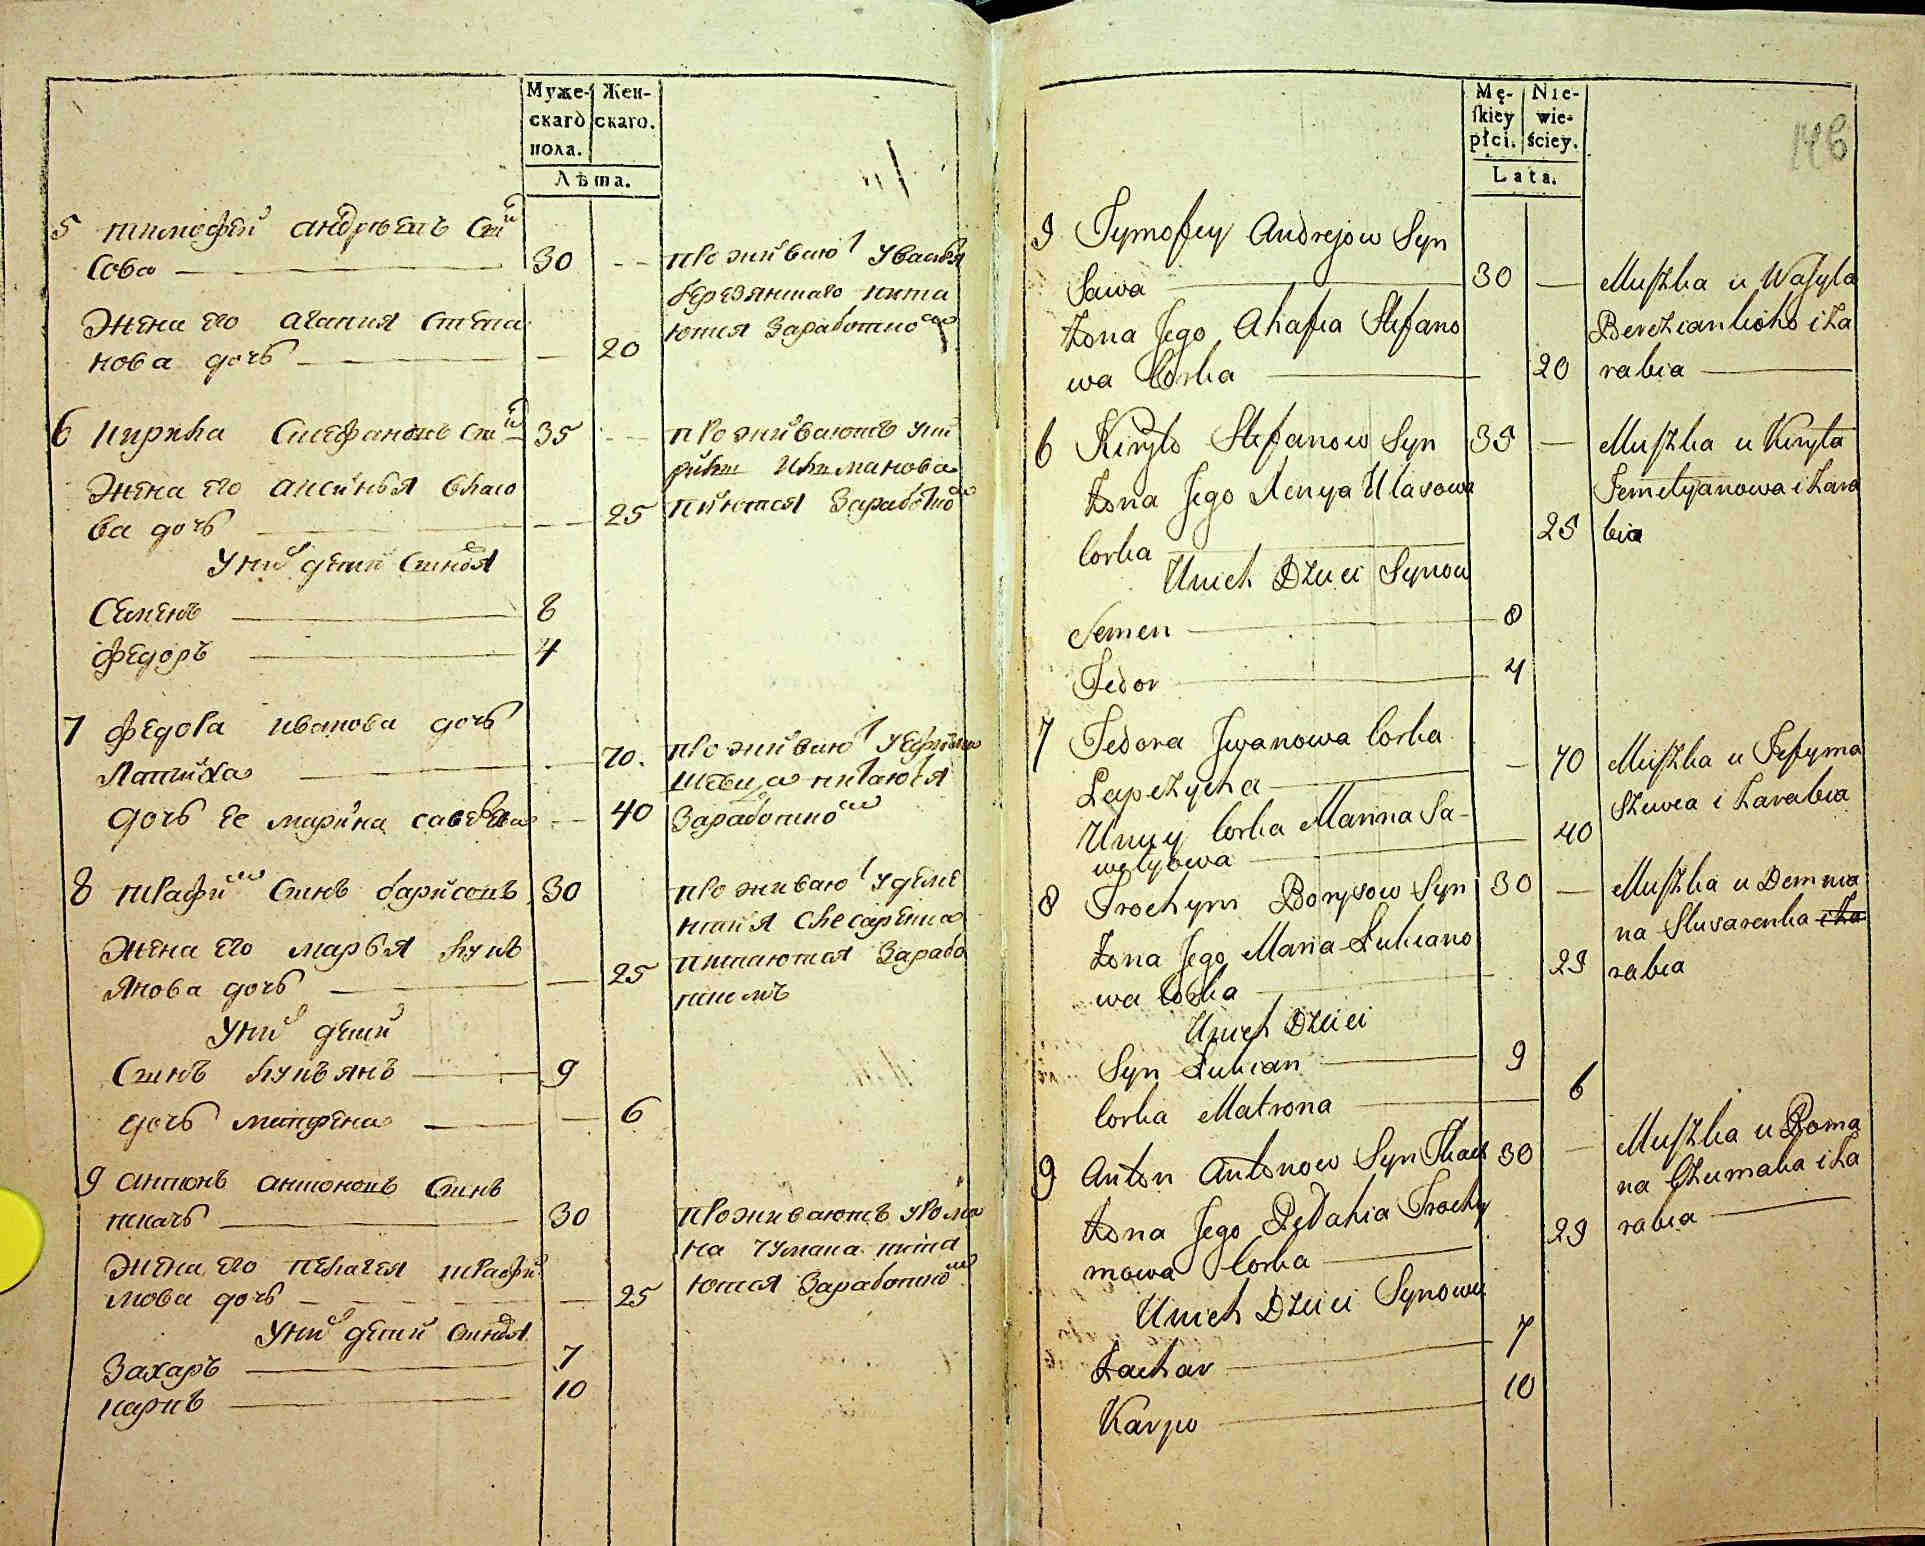 Муже-
скаго
пола.
Жен-
скаго.
Лѣта.
5 тимофей андрѣевъ сии
Сова 30 --
проживаю у василя
березянскаго пита
ются заработко
Жена его агапия степа
нова дочь — 20
6 кирила стефановъ сии 35 --
проживаютъ у ки
пиются заработко
Жена его аксинья власо
ва дочь -- 25
У них детей синовя
Семенъ 8
Федоръ 4
7 федора иванова дочь
Лапчиха 70.
проживаю у ефима
шевца питаются
заработко
дочь ее марина савелева -- 40
8 трафим синъ барисовъ 30
проживаю у деме
нтия слесаренка
питаются зарабо
ткомъ
Жена его марья лукъ
янова дочь — 25
У них детей
Синъ лукъянъ 9
дочь матрена — 6
9 антонъ антоновъ синъ
ткачъ 30
проживаютъ у рома
на чумака пита
ются заработко
Жена его пелагея трафи
мова дочь — 25
У них детей синовя
Захаръ 7
карпъ 10
Mę-
ſkiey
płci.
Nie-
wie-
ściey.
Lata.
146
5 Tymofey Andrejow Syn
Sawa 30 —
Muſzka u Waſyla
Berezianskoho i Za
rabia
Żona Jego Ahafia Stefano
wa Corka 20
6 Kiryło Stefanow Syn 35 —
Muſzka u Kiryła
Jemelyanowa i Zara
bia
Żona Jego Xenya Ułasowa
Corka 25
U nich Dzieci Synow
Semen 8
Fedor 4
7 Fedora Jwanowa Corka
Łapczycha — 70
Muſzka u Jefyma
Szewca i Zarabia
U niey Corka Marina Sa-
welyowa 40
8 Trochym Borysow Syn 30 —
Muſzka u Demnia
na Slusarenka i Za
rabia
Żona Jego Maria Łukiano
wa Corka 25
U nich Dzieci
Syn Łukian 9
Corka Matrona 6
9 Anton Antonow Syn Tkacz 30 —
Muſzka u Roma
na Czumaka i Za
rabia
Żona Jego Pełahia Trochy
mowa Corka 25
U nich Dzieci Synowie
Zachar 7
Karpo 10